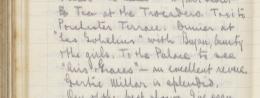 To Tea at the Trocadero. Taxi to
Porchester Terrace. Dinner at
"Les Gobelins" with Bryan, Aunty
& the girls. To the Palace to see
"Airs & Graces" – an excellent revue.
Gertie Millar is splendid.
One of the best shows I've seen